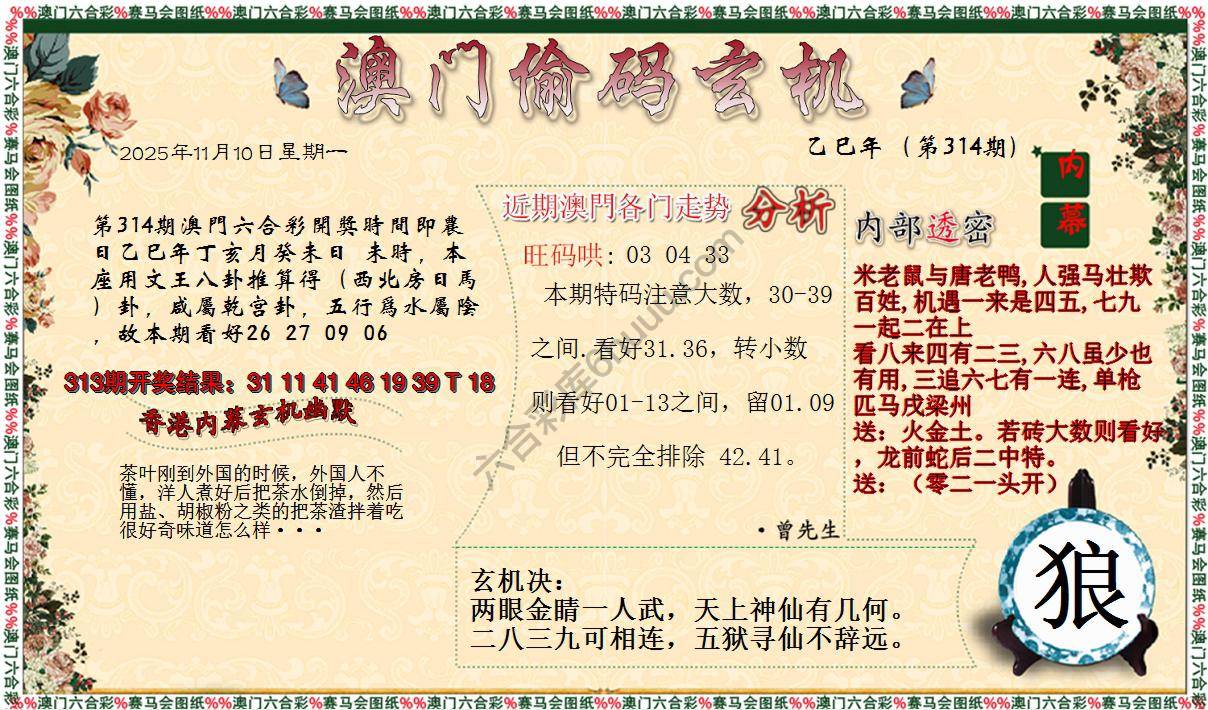 %%澳门六合彩%赛马会图纸%%澳门六合彩%赛马会图纸%%澳门六合彩%赛马会图纸%%澳门六合彩%赛马会图纸%%澳门六合彩%赛马会图纸%%澳门六合彩%赛马会图纸
澳门偷码玄机
2025年11月10日星期一
乙巳年（第314期）
内幕
第314期澳門六合彩開獎時間即農
日乙巳年丁亥月癸未日 未時，本
座用文王八卦推算得（西北房日馬
）卦，咸屬乾宫卦，五行爲水屬陰
，故本期看好26 27 09 06
313期开奖结果：31 11 41 46 19 39 T 18
香港内幕玄机幽默
茶叶刚到外国的时候，外国人不
懂，洋人煮好后把茶水倒掉，然后
用盐、胡椒粉之类的把茶渣拌着吃
很好奇味道怎么样・・・
近期澳門各门走势 分析
旺码哄: 03 04 33
本期特码注意大数，30-39
之间.看好31.36，转小数
则看好01-13之间，留01.09
但不完全排除 42.41。
・曾先生
内部透密
米老鼠与唐老鸭,人强马壮欺
百姓,机遇一来是四五,七九
一起二在上
看八来四有二三,六八虽少也
有用,三追六七有一连,单枪
匹马戌梁州
送：火金土。若砖大数则看好
，龙前蛇后二中特。
送：（零二一头开）
玄机决：
两眼金睛一人武，天上神仙有几何。
二八三九可相连，五狱寻仙不辞远。
狼
%%澳门六合彩%赛马会图纸%%澳门六合彩%赛马会图纸%%澳门六合彩%赛马会图纸%%澳门六合彩%赛马会图纸%%澳门六合彩%赛马会图纸%%澳门六合彩%赛马会图纸